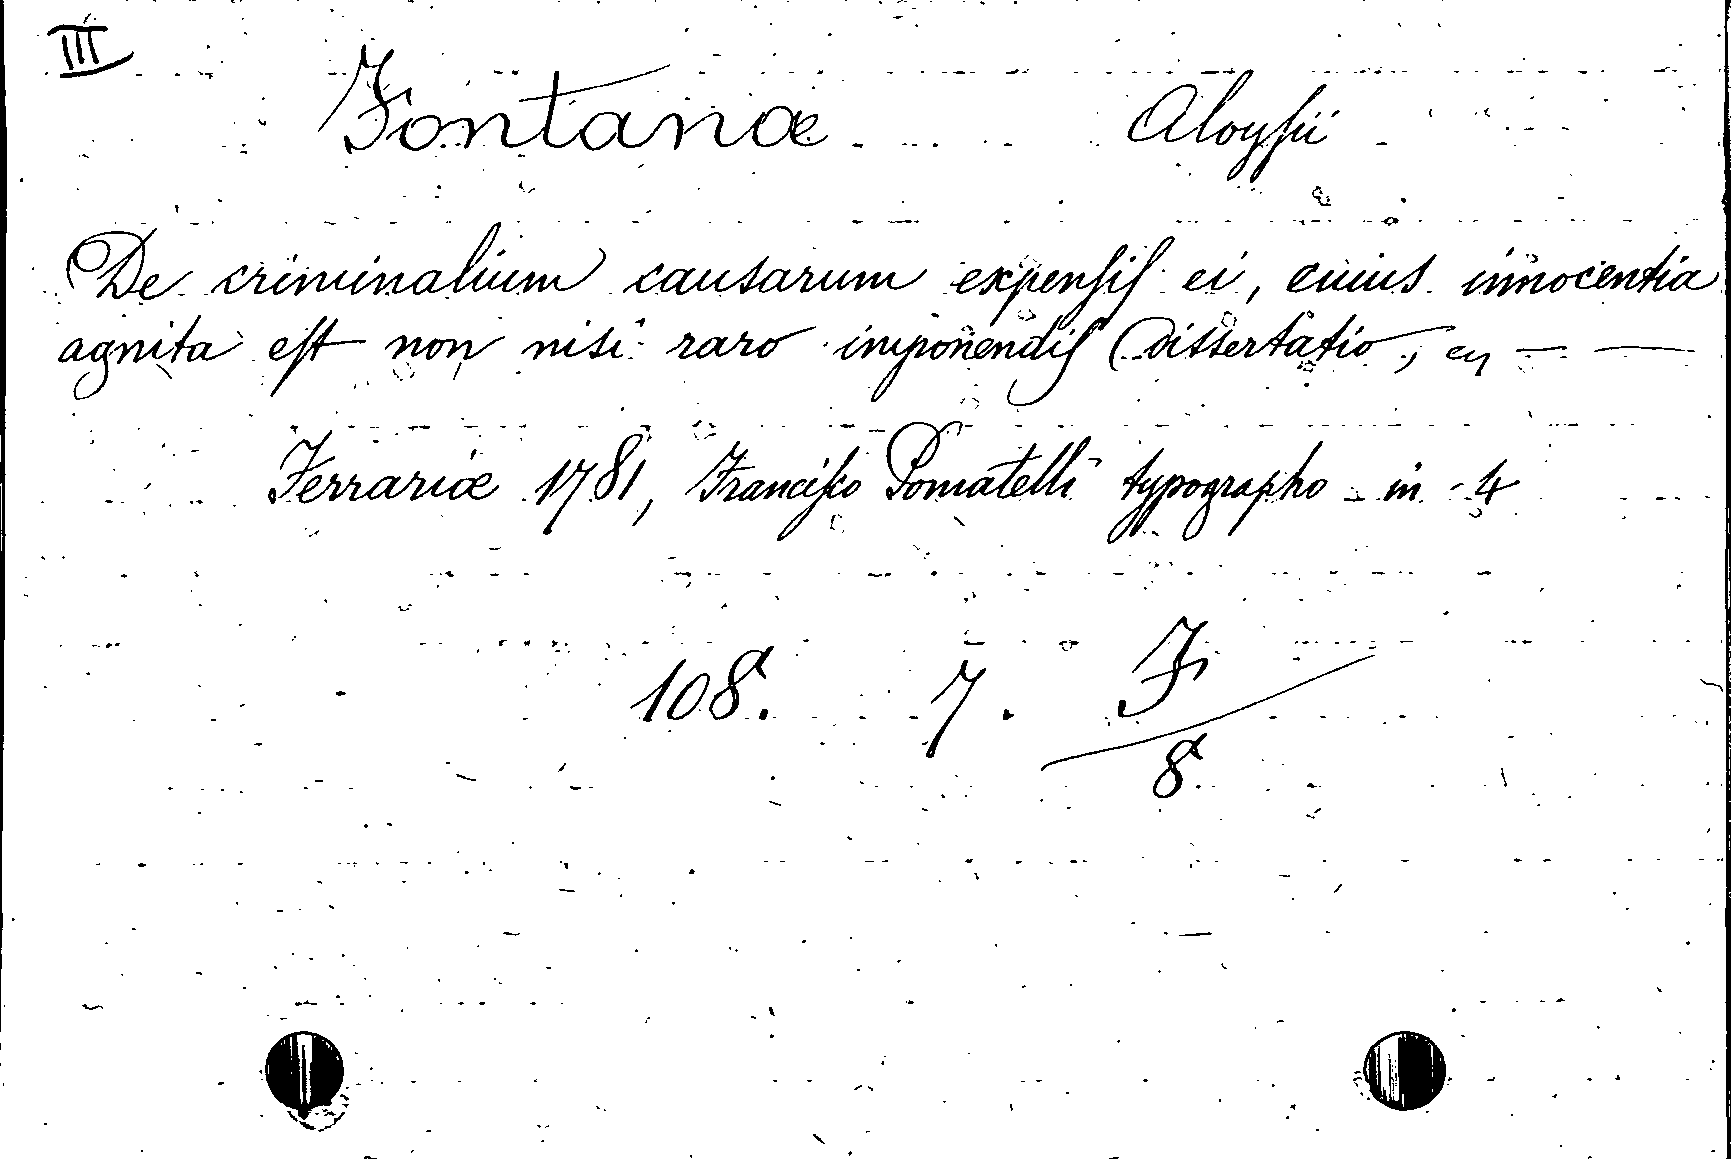 III
Fontanæ Aloysii
De criminalium causarum expensis ei, cuius innocentia
agnita est non nisi raro imponendis Dissertatio,
Ferrariæ 1781, Francisco Pomatelli typographo in-4
108. 7. F
8